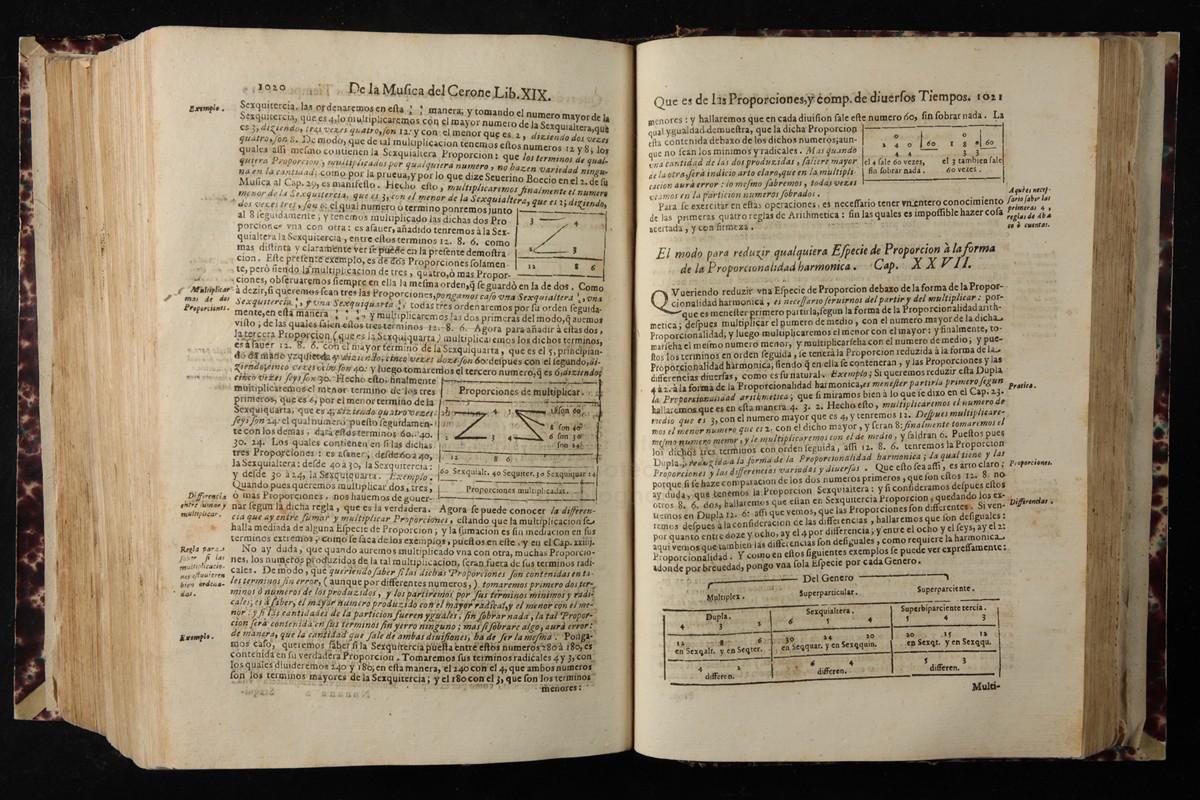 1020 De la Musica del Cerone Lib. XIX.
Exemplo.
Sexquitercia. las ordenaremos en esta manera, y tomando el numero mayor de la
Sexquitercia, que es 4, lo multiplicaremos con el mayor numero de la Sexquialtera, que
es 3, diziendo, tres vezes quatro, son 12: y con el menor que es 2, diziendo dos vezes
quatro, son 8. De modo, que de tal multiplicacion tenemos estos numeros 12 y 8, los
quales assi mesmo contienen la Sexquialtera Proporcion: que los terminos de qual-
quiera Proporcion, multiplicados por qualquiera numero, no hazen variedad ningu-
na en la cantidad: como por la prueua, y por lo que dize Seuerino Boecio en el 2. de su
Musica al Cap. 29, es manifesto. Hecho esto, multiplicaremos finalmente el numero
menor de la Sexquitercia, que es 3, con el menor de la Sexquialtera, que es 2; diziendo,
dos vezes tres, son 6: el qual numero ò termino ponremos junto
al 8 seguidamente; y tenemos multiplicado las dichas dos Pro
porciones vna con otra: es asauer, añadido tenremos à la Sex-
quialtera la Sexquitercia, entre estos terminos 12. 8. 6. como
mas distinta y claramente ver se puede en la presente demostra
cion. Este presente exemplo, es de dos Proporciones solamen-
te, però siendo la multiplicacion de tres, quatro, ò mas Propor-
3 4
2 3
12 8 6
ciones, obseruaremos siempre en ella la mesma orden, q̃ se guardò en la de dos. Como
Multiplicar
mas de dos
Proporciones.
à dezir, si queremos sean tres las Proporciones, pongamos caso vna Sexquialtera, vna
Sexquitercia, y vna Sexquiquarta, todas tres ordenaremos por su orden seguida-
mente, en esta manera y multiplicaremos las dos primeras del modo, q̃ auemos
visto; de las quales salen estos tres terminos 12. 8. 6. Agora para añadir à estas dos,
la tercera Proporcion (que es la Sexquiquarta) multiplicaremos los dichos terminos,
es à sauer 12. 8. 6. con el mayor termino de la Sexquiquarta, que es el 5, principian-
do da mano yzquierda y diziendo, cinco vezes doze son 60: despues con el segundo, di-
ziendo, cinco vezes ocho son 40: y luego tomaremos el tercero numero, q̃ es 6, diziendo;
cinco vezes seys son 30. Hecho esto, finalmente
multiplicaremos el menor termino de los tres
primeros, que es 6, por el menor termino de la
Sexquiquarta, que es 4, diziendo quatro vezes
seys son 24: el qual numero puesto seguidamen-
te con los demas, darà estos terminos 60. 40.
30. 24. Los quales contienen en si las dichas
tres Proporciones: es asauer, desde 60 à 40,
la Sexquialtera: desde 40 à 30, la Sexquitercia:
y desde 30 à 24, la Sexquiquarta. Exemplo.
Quando pues queremos multiplicar dos, tres,
Proporciones de multiplicar.
3 4 5 son 60
8 son 40
2 3 4 6 son 30
son 24
12 8 6
60 Sexquialt. 40 Sexquiter. 30 Sexquiquar 24
Proporciones multiplicadas.
Differencia
entre sumar y
multiplicar.
ò mas Proporciones, nos hauemos de gouer-
nar segun la dicha regla, que es la verdadera. Agora se puede conocer la differen-
cia que ay entre sumar y multiplicar Proporciones, estando que la multiplicacion se
halla mediada de alguna Especie de Proporcion; y la sumacion es sin mediacion en sus
terminos extremos, como se saca de los exemplos, puestos en este, y en el Cap. xxiiij.
Regla para
saber si las
multiplicacio-
nes estuuieren
bien ordena-
das.
No ay duda, que quando auremos multiplicado vna con otra, muchas Proporcio-
nes, los numeros produzidos de la tal multiplicacion, seran fuera de sus terminos radi-
cales. De modo, que queriendo saber si las dichas Proporciones son contenidas en ta-
les terminos sin error, (aunque por differentes numeros,) tomaremos primero dos ter-
minos ò numeros de los produzidos, y los partiremos por sus terminos minimos y radi-
cales; es à saber, el mayor numero produzido con el mayor radical, y el menor con el me-
nor: y si las cantidades de la particion fueren yguales, sin sobrar nada, la tal Propor-
cion serà contenida en sus terminos sin yerro ninguno; mas si sobrare algo, aurà error:
Exemplo.
de manera, que la cantidad que sale de ambas diuisiones, ha de ser la mesma. Ponga-
mos caso, queremos saber si la Sexquitercia puesta entre estos numeros 280 à 180, es
contenida en su verdadera Proporcion. Tomaremos sus terminos radicales 4 y 3, con
los quales diuideremos 240 y 180, en esta manera, el 240 con el 4, que ambos numeros
son los terminos mayores de la Sexquitercia; y el 180 con el 3, que son los terminos
menores:
Que es de las Proporciones, y comp. de diuersos Tiempos. 1021
menores: y hallaremos que en cada diuision sale este numero 60, sin sobrar nada. La
qual ygualdad demuestra, que la dicha Proporcion
esta contenida debaxo de los dichos numeros, aun-
que no sean los minimos y radicales. Mas quando
vna cantidad de las dos produzidas, saliere mayor
de la otra, serà indicio arto claro, que en la multipli-
cacion aurà error: lo mesmo sabremos, todas vezes
veamos en la particion numeros sobrados.
0 0
2 4 0 60 1 8 0 60
4 4 3 3
el 4 sale 60 vezes, el 3 tambien sale
sin sobrar nada. 60 vezes.
A que es necess-
sario saber las
primeras 4,
reglas de Aba
co ò cuentas.
Para se exercitar en estas operaciones, es necessario tener vn entero conocimiento
de las primeras quatro reglas de Arithmetica: sin las quales es impossible hazer cosa
acertada, y con firmeza.
El modo para reduzir qualquiera Especie de Proporcion à la forma
de la Proporcionalidad harmonica. Cap. XXVII.
QVueriendo reduzir vna Especie de Proporcion debaxo de la forma de la Propor-
cionalidad harmonica, es necessario seruirnos del partir y del multiplicar: por-
que es menester primero partirla, segun la forma de la Proporcionalidad arith-
metica; despues multiplicar el numero de medio, con el numero mayor de la dicha
Proporcionalidad, y luego multiplicaremos el menor con el mayor: y finalmente, to-
marseha el mesmo numero menor, y multiplicarseha con el numero de medio; y pue-
stos los terminos en orden seguida, se tenerà la Proporcion reduzida à la forma de la
Proporcionalidad harmonica, siendo q̃ en ella se conteneran, y las Proporciones y las
differencias diuersas, como es su natural. Exemplo; Si queremos reduzir esta Dupla
Pratica.
4 à 2. à la forma de la Proporcionalidad harmonica, es menester partirla primero segun
la Proporcionalidad arithmetica; que si miramos bien à lo que se dixo en el Cap. 23.
hallaremos que es en esta manera 4. 3. 2. Hecho esto, multiplicaremos el numero de
medio que es 3, con el numero mayor que es 4, y tenremos 12. Despues multiplicare-
mos el menor numero que es 2. con el dicho mayor, y seran 8: finalmente tomaremos el
mesmo numero menor, y le multiplicaremos con el de medio, y saldran 6. Puestos pues
los dichos tres terminos con orden seguida, assi 12. 8. 6. tenremos la Proporcion
Dupla, reduzida à la forma de la Proporcionalidad harmonica; la qual tiene y las
Proporciones.
Proporciones y las differencias variadas y diuersas. Que esto sea assi, es arto claro;
porque si se haze comparacion de los dos numeros primeros, que son estos 12. 8: no
ay duda, que tenemos la Proporcion Sexquialtera: y si consideramos despues estos
otros 8. 6. dos, hallaremos que estan en Sexquitercia Proporcion, quedando los ex-
Differencias.
tremos en Dupla 12. 6: assi que vemos, que las Proporciones son differentes. Si ven-
remos despues à la consideracion de las differencias, hallaremos que son desiguales:
por quanto entre doze y ocho, ay el 4 por differencia; y entre el ocho y el seys, ay el 2:
aqui vemos que tambien las differencias son desiguales, como requiere la harmonica
Proporcionalidad. Y como en estos siguientes exemplos se puede ver expressamente:
adonde por breuedad, pongo vna sola Especie por cada Genero.
Del Genero
Multiplex. Superparticular. Superparciente.
Dupla. Sexquialtera. Superbiparciente tercia.
4 3 2 6 5 4 5 4 3
12 8 6 30 24 20 20 15 12
en Sexqalt. y en Seqter. en Seqquar. y en Sexqquin. en Sexqt. y en Sexqqu.
4 2 6 4 5 3
differen. differen. differen.
Multi-